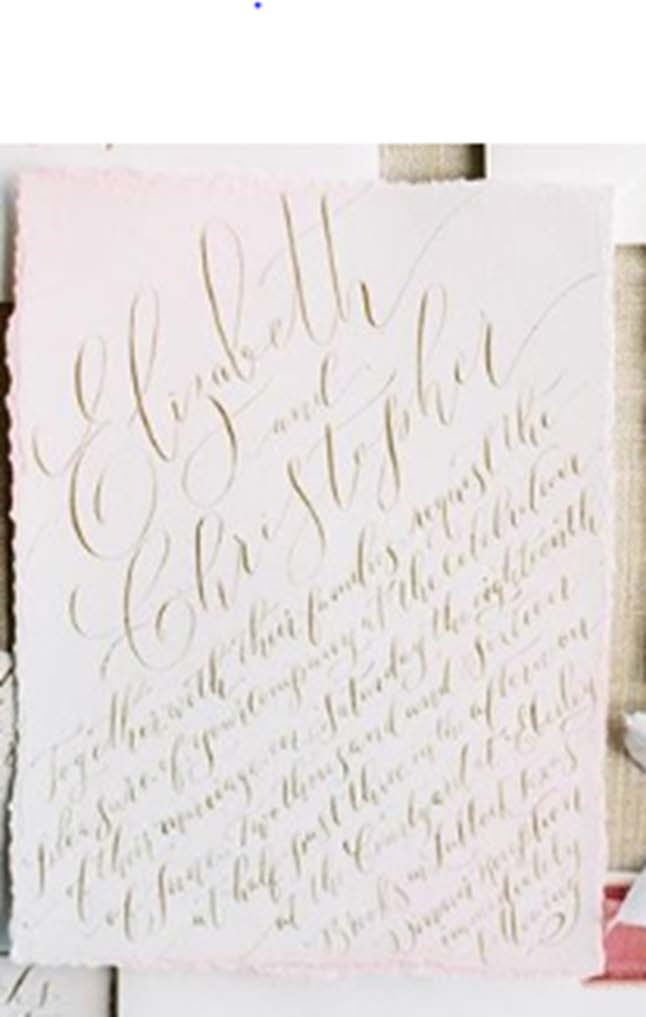 Elizabeth
and
Christopher
Together with their families request the
pleasure of your company at the celebration
of their marriage on Saturday the eighteenth
of June Two thousand and sixteen
at half past three in the afternoon
at the Courtyard at
Brooks in Texas
Dinner reception
immediately
following